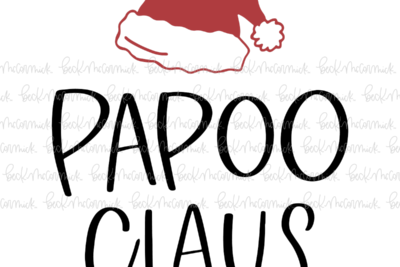 PAPOO
CLAUS